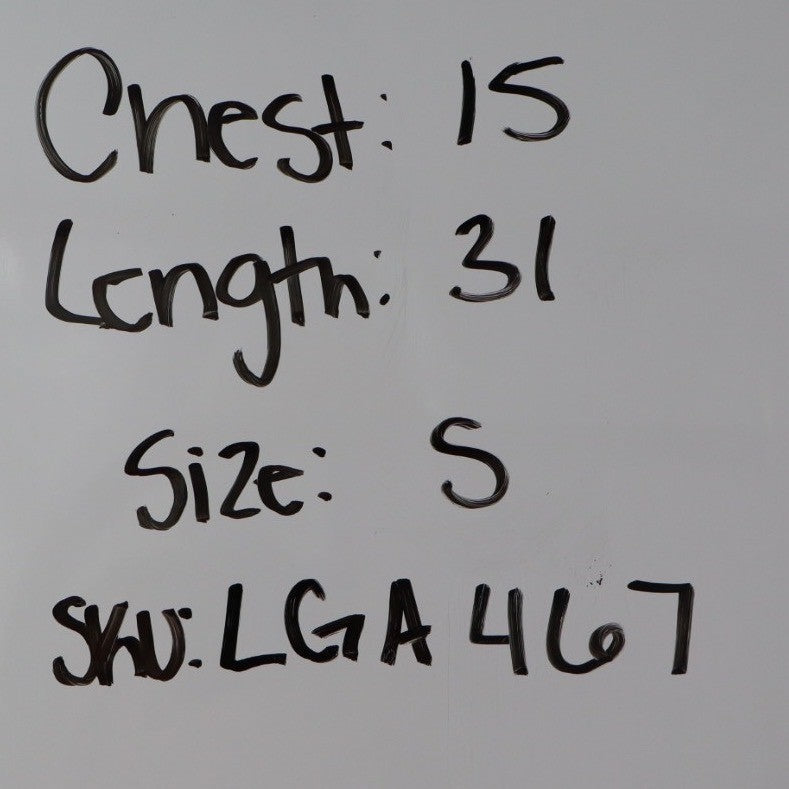 Chest: 15
Length: 31
Size: S
SKU: LGA 467